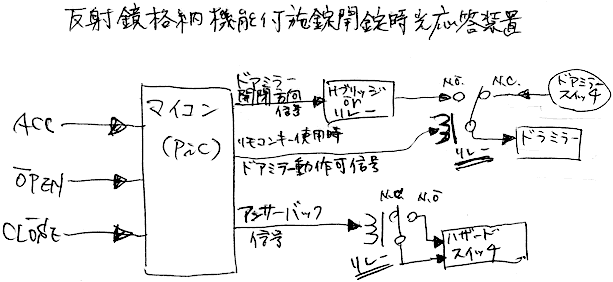 反射鏡格納機能付施錠開錠時光応答装置
ACC
OPEN
CLOSE
マイコン
(PiC)
ドアミラー
開閉方向
信号
Hブリッジ
or
リレー
N.O.
N.C.
ドアミラー
スイッチ
リモコンキー使用時
ドアミラー動作可信号
リレー
ドラミラー
アンサーバック
信号
N.C.
N.O
リレー
ハザード
スイッチ